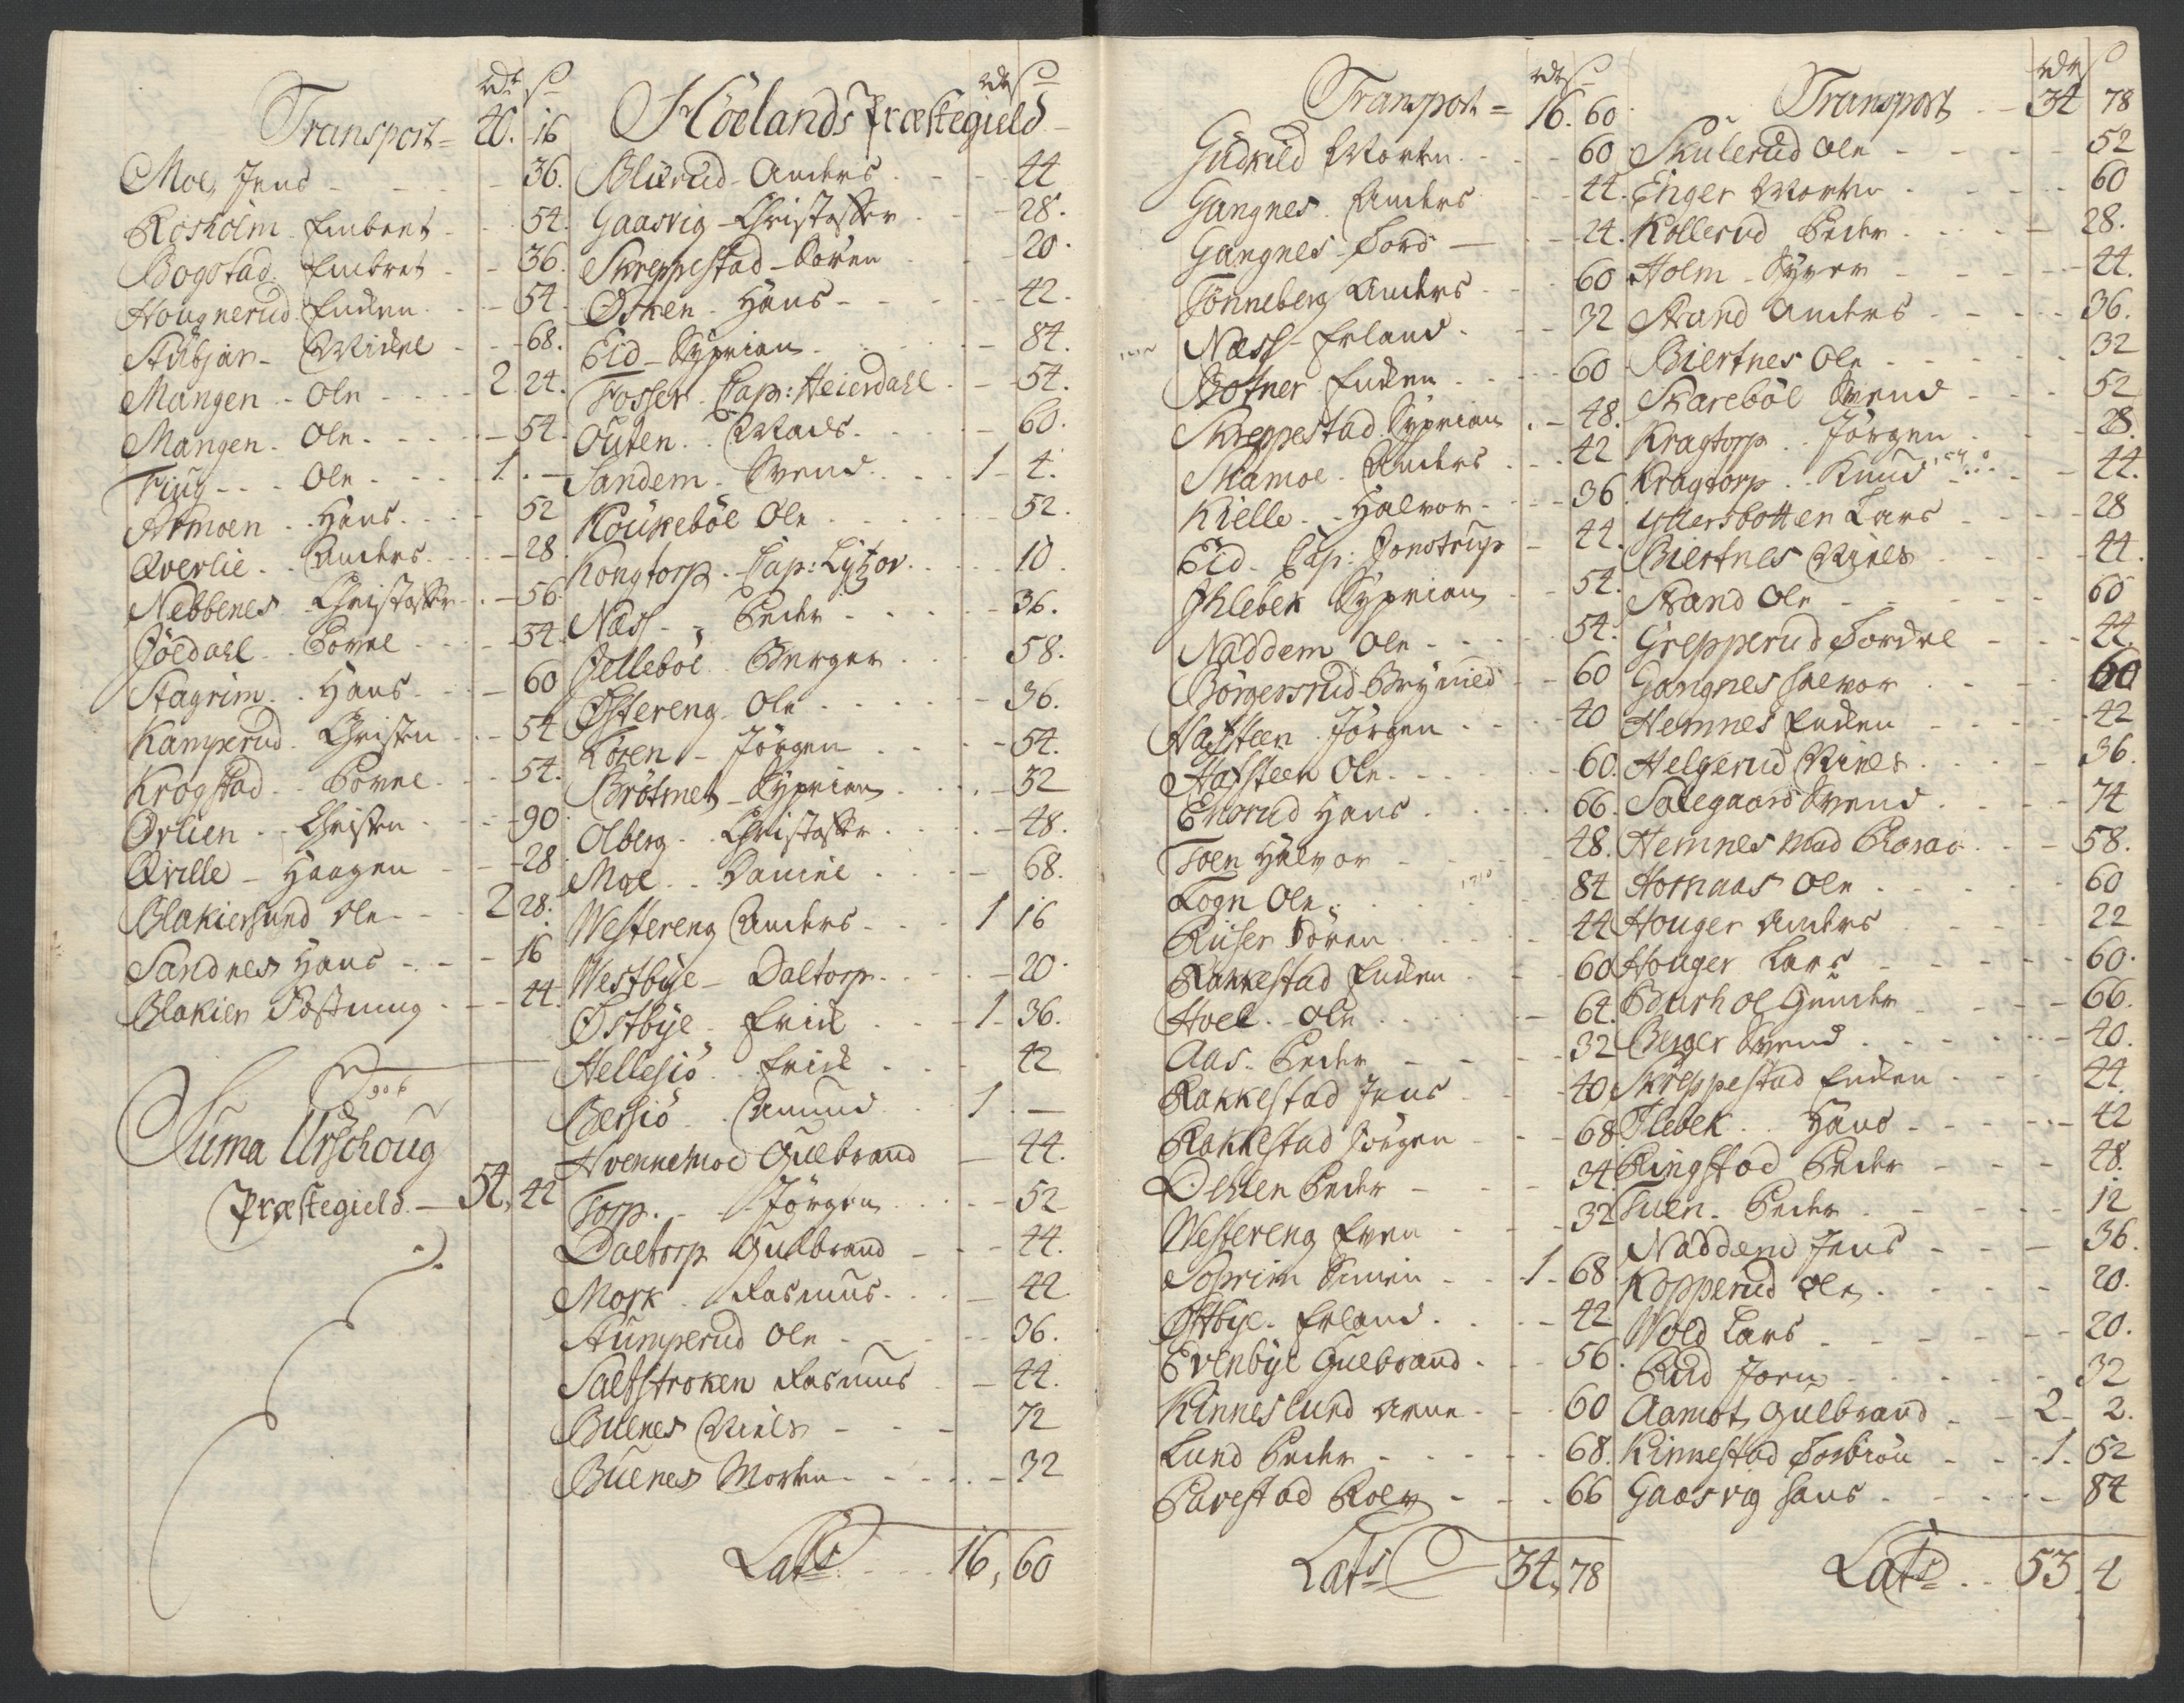 rdr ſ
Transport = 40. 16
Moe, Jens - - - 36.
Rosholm Embret - - 54.
Bogstad. Embret - - 36.
Hougnerud. Enken - - 54.
Stübjar - Mickel - - 68.
Mangen - Ole - - - 2. 24.
Mangen. Ole - - - 54.
Ting - - - Ole - - - 1. -
Armoen . . Hans. - - 52
Qverlie. . Anders. - - 28.
Nebbenes. Christoffer - 56
Jöedahl. Povel - - 54.
Stagrim. . Hans. - - 60
Kamperud. Christen - - 54
Krogstad. . Povel. - - 54.
Ørlien. - Christen - - 90
Qville - Haagen - - 28
Blakiersund Ole - - 2 28.
Sandnes Hans - - - 16
Blakier Postning - - - 44.
Suma Urschoug
Præstegield. — 54, 42
rdr ſ
Höelands Præstegield
Blürud - Anders - - 44
Gaasvig - Christoffer - - 28.
Skreppestad - Sören - - 20.
Østen - Hans - - - 42.
Eid - Syprian - - - 84.
Fosser. Cap: Heierdahl - - 54.
Outen. . Mads - - - 60.
Sandem - Svend. - - 1 - 4.
Koukeböl Ole - - - 52.
Kongtorp. - Cap: Lützov. - - 10.
Næs - - Peder - - - 36.
Jelleböl. Børger - - 58.
Østereng. Ole - - - 36.
Koren - Jörgen - - - 54.
Brötmet - Syprian - - 32
Olberg. . Christoffer - - 48.
Moe. . Daniel - - 68.
Westereng Anders - - - 1 16
Westbye - Daltorp. - - 20.
Østbye. Erick - - 1. 36.
Hellesiö. . Erick - - 42
Bersiö. . Amund. - 1. —
Hvennemoe Gulbrand — 44.
Torp. - - Jörgen - - 52
Daltorp Gulbrand - - 44.
Mork. . Rasmus. - - 42
Stumperud Ole - - - 36.
Saltstroken Rasmus - - 44.
Buenes Niels - - - 72
Buenes Morten. - - - 32
Lats - - 16, 60
rdr ſ
Transport = 16. 60.
Gudkild Morten. - - 60
Gangnes. Anders - - 44.
Gangnes - Tord — - 24.
Tönneberg Anders - - 60
Næss - Erland. - - 32
Botner Encken - - - 60
Skreppestad. Syprian . - 48.
Skamoe. Anders - - 42
Kielle. - Halvor - - - 36
Eid - Cap: Jonstrup - 44.
Ihlebek Syprian - - 54.
Naddem Ole - - - 54.
Börgersrud Brynild - - 60
Hafsteen Jörgen - - - 40
Hafsteen Ole. - - - 60.
Ehorud Hans - - - 66.
Toen Halvor - - - 48.
Fogn Ole. - - - 84
Riiser Sören - - - 44
Rakkestad Encken - - 60
Hoel. - Ole - - - 64.
Aas. Peder - - - 32
Rakkestad Jens - - 40
Rakkestad Jörgen - - 68
Dehlen Peder - - - 34
Westereng Even - - - 32
Soprim Simen - - - 1. 68
Østbye. Erland. - - 42
Evenbye Gulbrand - - 56.
Kinneslund Arne - - 60
Lund Peder - - - 68.
Parestad Roler - - - 66
Lats 34, 78
rdr ſ
Transport - 34 78
Skulerud Ole - - - 52
Enger Morten - - - 60
Kollerud Peder. - - - 28.
Holm - Syver - - - 44.
Strand Anders - - - 36.
Biertnes Ole - - - 32
Skareböl Svend - - 52
Kragtorp. . Jörgen - - 28.
Kragtorp. . Knud - - 44.
Ytterbotten Lars - - 28
Biertnes Niels - - 44.
Strand Ole - - - 60
Grepperud Tordel - - 44.
Gangnes Halvor - - 60
Hemnes Encken - - 42
Helgerud Niels - - - 36.
Salegaard Svend - - 74
Hemnes Mad Clorac - - 58.
Hornaas Ole - - - 60
Houger Anders - - 22
Houger Lars - - - 60.
Bdurhol Gunder - - - 66.
Berger Svend - - - 40.
Skreppestad Encken - - 44.
Flebek. . Hans - - - 42
Ringstad Peder - - - 48.
Tuen. Peder - - - 12
Naddem Jens - - - 36.
Kopperud Ole. - - - 20.
Wold Lars - - - 20.
Rud Joen - - - 32
Aamot Gulbrand - - 2. 2.
Kinnestad Torbiön - - 1. 52
Gaasvig Hans - - - 84
Lats - - 53. 4